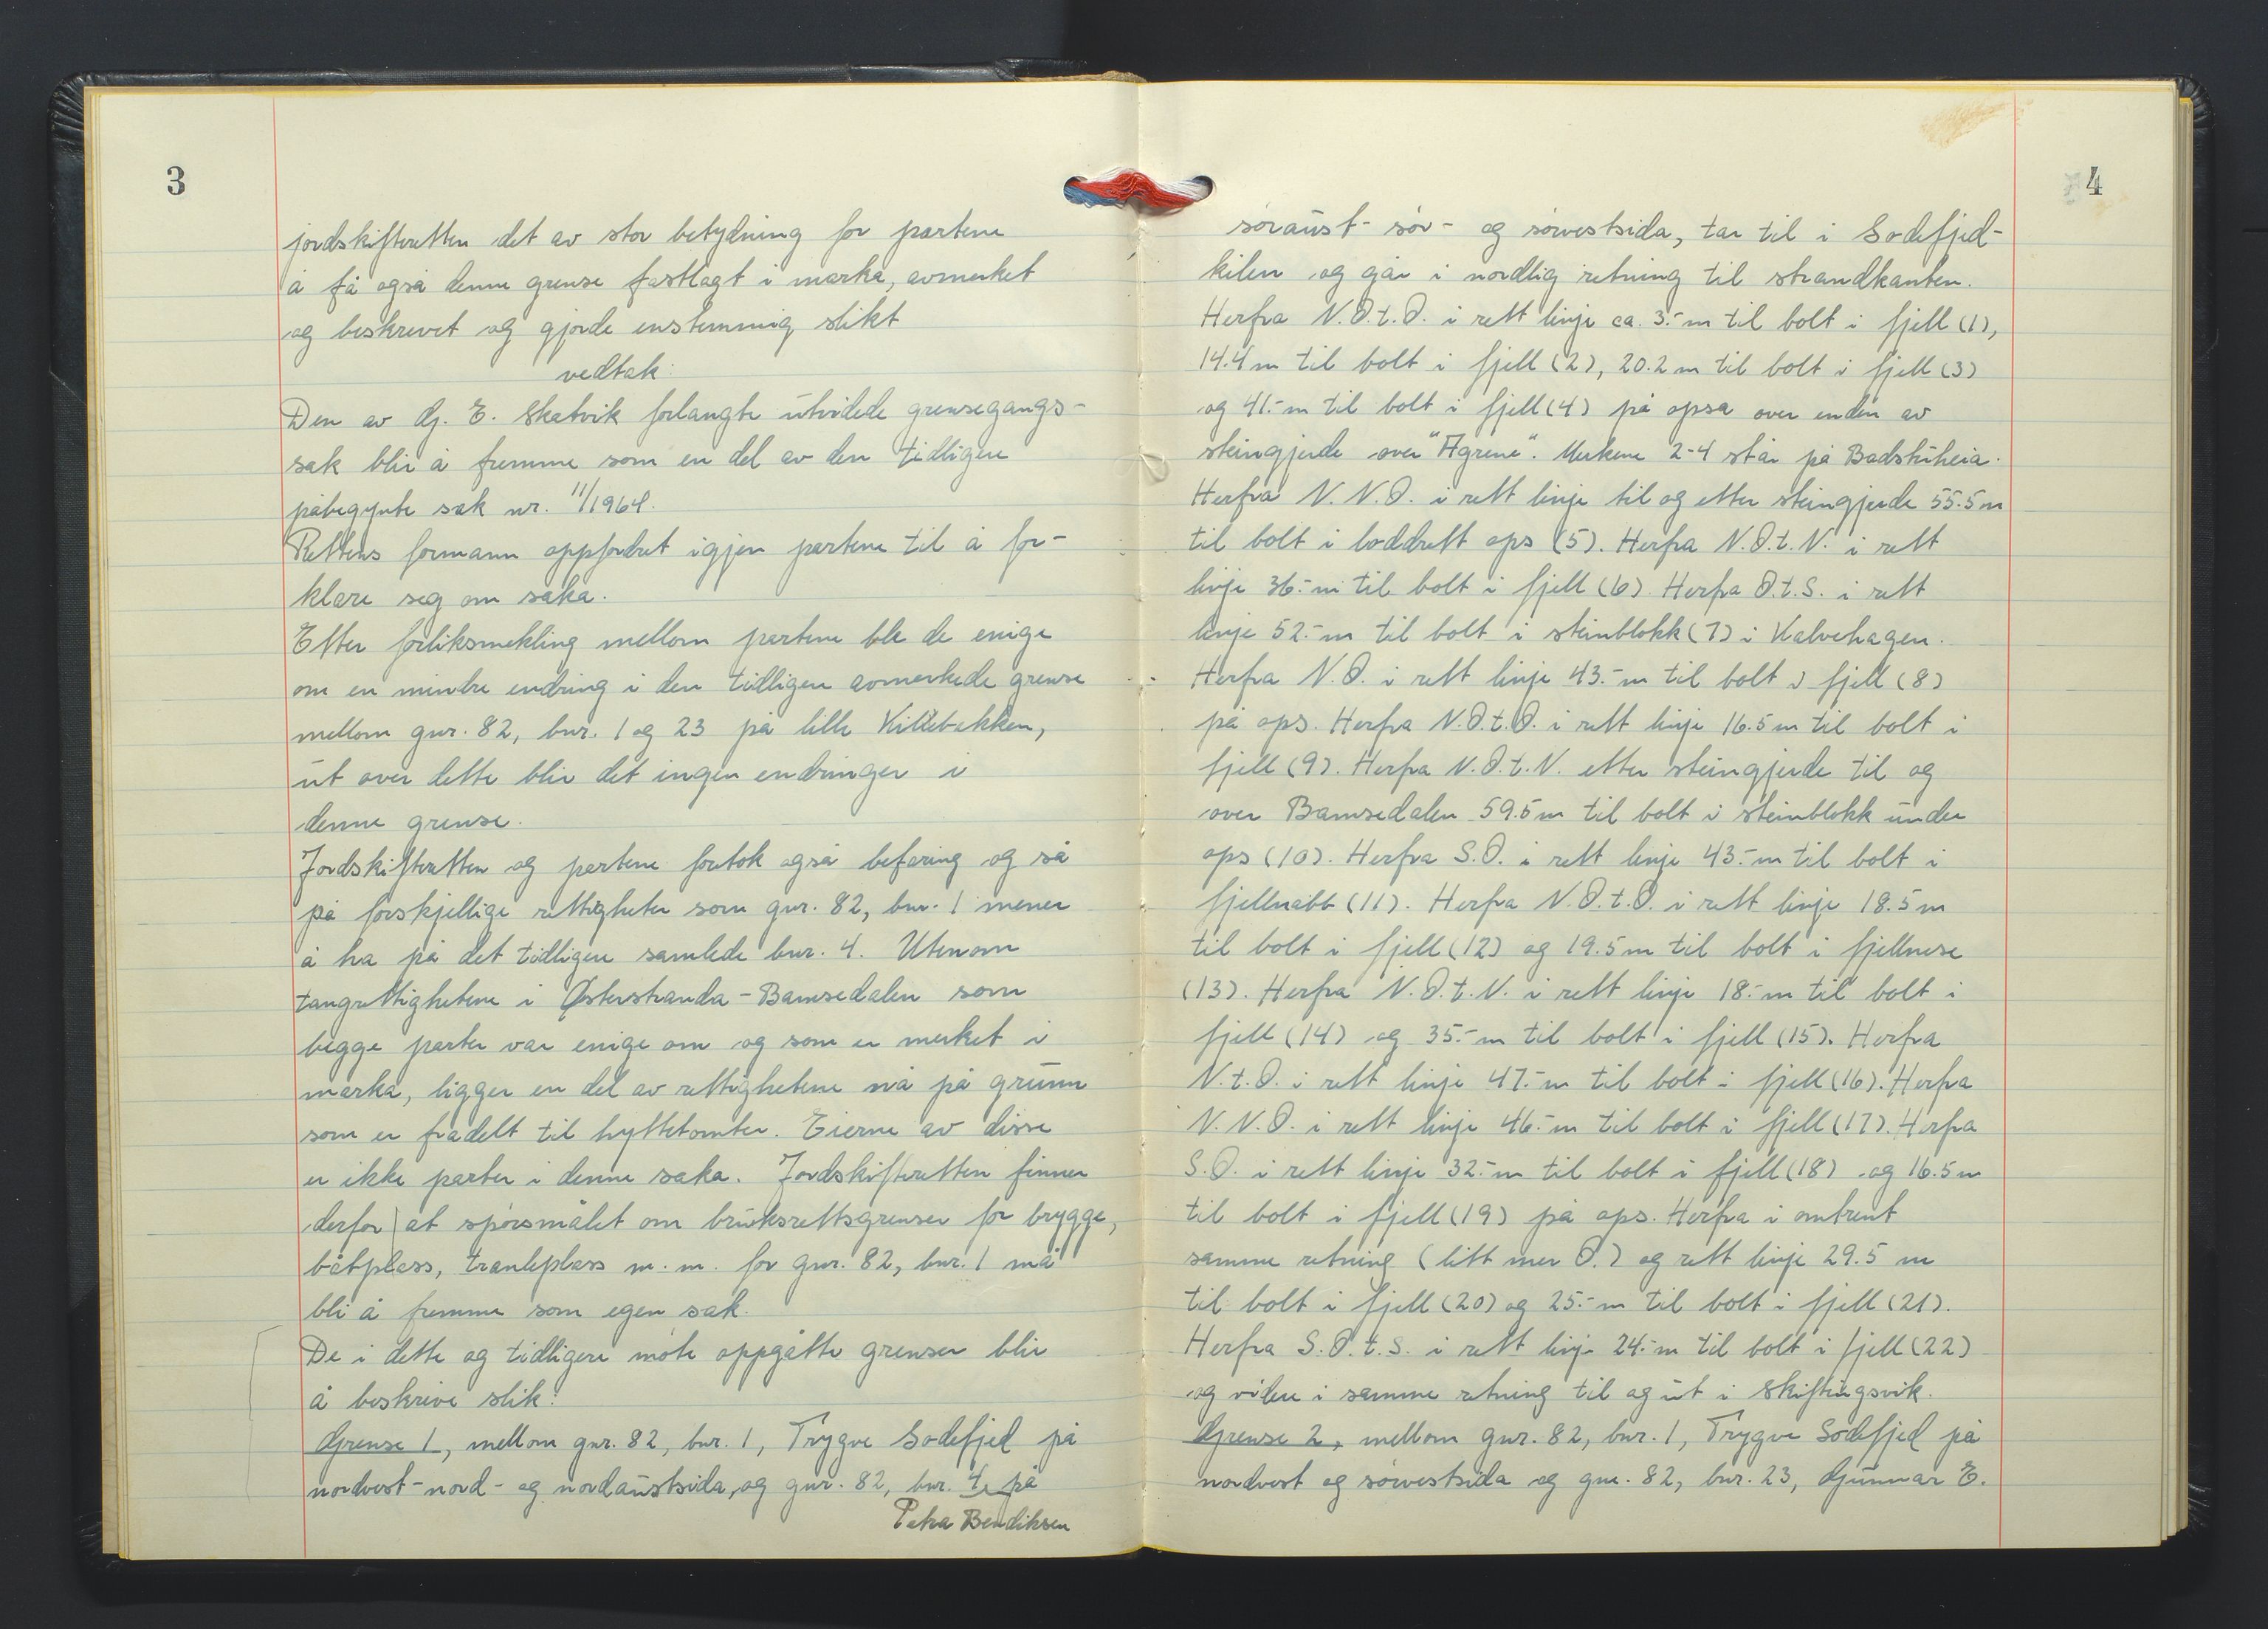 3
jordskifteretten det av stor betydning for partene
å få også denne grense fastlagt i marka, avmerket
og beskrevet og gjorde enstemmig slikt
vedtak:
Den av G. E. Skatvik forlangte utvidede grensegangs-
sak blir å fremme som en del av den tidligere
påbegynte sak nr. 11/1964.
Rettens formann oppfordret igjen partene til å for-
klare seg om saka.
Etter forliksmekling mellom partene ble de enige
om en mindre endring i den tidligere avmerkede grense
mellom gnr. 82, bnr. 1 og 23 på lille Killebekken,
ut over dette blir det ingen endringer i
denne grense.
Jordskifteretten og partene foretok også befaring og så
på forskjellige rettigheter som gnr. 82, bnr. 1 mener
å ha på det tidligere samlede bnr. 4. Utenom
tangrettighetene i Østerstranda - Bamsedalen som
begge parter var enige om og som er merket i
marka, ligger en del av rettighetene nå på grunn
som er fradelt til hyttetomter. Eierne av disse
er ikke parter i denne saka. Jordskifteretten finner
derfor at spørsmålet om bruksrettsgrenser for brygge,
båtplass, tranleplass m.m. for gnr. 82, bnr. 1 må
bli å fremme som egen sak.
De i dette og tidligere møte oppgåtte grenser blir
å beskrive slik:
Grense 1, mellom gnr. 82, bnr. 1, Trygve Sødefjed på
nordvest- nord- og nordaustsida, og gnr. 82, bnr. 4, på
Petra Bendiksen
4
søraust- sør- og sørvestsida, tar til i Sødefjed-
kilen og går i nordlig retning til strandkanten.
Herfra N.Ø.t.Ø. i rett linje ca. 3.- m til bolt i fjell (1),
14.4 m til bolt i fjell (2), 20.2 m til bolt i fjell (3)
og 41.- m til bolt i fjell (4) på opsa over enden av
steingjerde over "Agrene". Merkene 2-4 står på Badstuheia.
Herfra N.N.Ø. i rett linje til og etter steingjerde 55.5 m
til bolt i loddrett ops (5). Herfra N.Ø.t.N. i rett
linje 36.- m til bolt i fjell (6). Herfra Ø.t.S. i rett
linje 52.- m til bolt i steinblokk (7) i Kalvehagen.
Herfra N.Ø. i rett linje 43.- m til bolt i fjell (8)
på ops. Herfra N.Ø.t.Ø. i rett linje 16.5 m til bolt i
fjell (9). Herfra N.Ø.t.N. etter steingjerde til og
over Bamsedalen 59.5 m til bolt i steinblokk under
ops (10). Herfra S.Ø. i rett linje 43.- m til bolt i
fjellnabb (11). Herfra N.Ø.t.Ø. i rett linje 18.5 m
til bolt i fjell (12) og 19.5 m til bolt i fjellnese
(13). Herfra N.Ø.t.N. i rett linje 18.- m til bolt i
fjell (14) og 35.- m til bolt i fjell (15). Herfra
N.t.Ø. i rett linje 47.- m til bolt i fjell (16). Herfra
N.N.Ø. i rett linje 46.- m til bolt i fjell (17). Herfra
S.Ø. i rett linje 32.- m til bolt i fjell (18) og 16.5 m
til bolt i fjell (19) på ops. Herfra i omtrent
samme retning (litt mer Ø.) og rett linje 29.5 m
til bolt i fjell (20) og 25.- m til bolt i fjell (21).
Herfra S.Ø.t.S. i rett linje 24.- m til bolt i fjell (22)
og videre i samme retning til og ut i Skiftingsvik.
Grense 2, mellom gnr. 82, bnr. 1, Trygve Sødefjed på
nordvest og sørvestsida og gnr. 82, bnr. 23, Gunnar E.